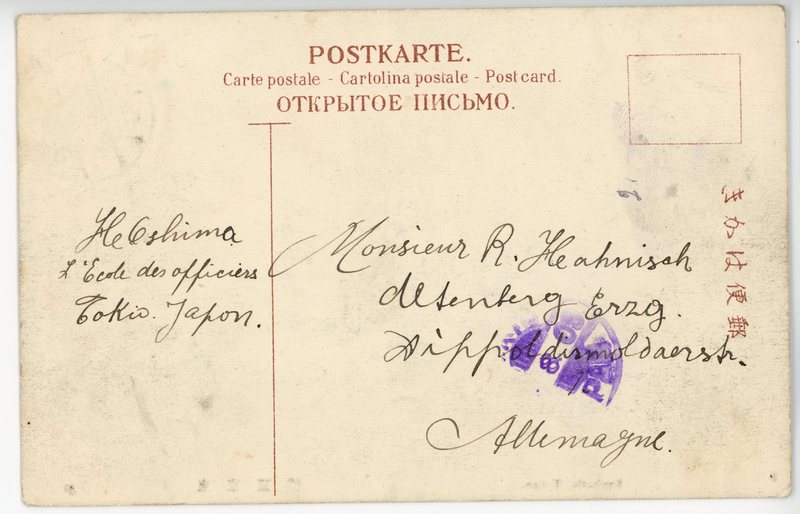 POSTKARTE.
Carte postale - Cartolina postale - Post card.
ОТКРЫТОЕ ПИСЬМО.
きかは便郵
H Oshima
L'École des officiers
Tokio. Japon.
Monsieur R. Hahnisch
Altenberg Erzg.
Dippoldismoldaerstr.
Allemagne.
PAR